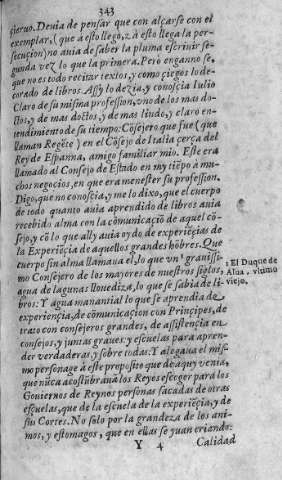 343
sieruo. Deuia de pensar que con alçarse con el
exemplar, (que a esto llego, z à esto llega la per-
secucion) no auia de saber la pluma escriuir se-
gunda vez lo que la primera. Pero enganno se,
que no es todo recitar textos, y como çiegos lo de-
corado de libros. Assy lo dezia, y conoscia Iulio
Claro de su misma profession, vno de los mas do-
llos, y de mas doctos, y de mas lindo, y claro en-
tendimiento de su tiempo: Cõsejero que fue (que
llaman Regẽte) en el Cõsejo de Italia çerca del
Rey de Espanna, amigo familiar mio. Este era
llamado al Consejo de Estado en my tiẽpo à mu-
chos negocios, en que era menester su profession.
Digo, que no conoscia, y me lo dixo, que el cuerpo
de todo quanto auia aprendido de libros auia
recebido alma con la cõmunicaciõ de aquel cõ-
sejo, y cõ lo que ally auia oydo de experiẽçias de
la Experiẽçia de aquellos grandes hõbres. Que
cuerpo sin alma llamaua el, lo que vnˈ grauissi-
mo Consejero de los mayores de nuestros siglos,
agua de lagunas llouediza, lo que se sabia de li-
bros: Y agua manantial lo que se aprendia de
experiençia, de cõmunicaçion con Prinçipes, de
trato con consejeros grandes, de assistençia en
consejos, y juntas graues y escuelas para apren-
der verdaderas, y sobre todas: Y alegaua el mis-
mo personage à este proposito que de aquy venia,
que nũca acostũbrauã los Reyes escoger para los
Gouiernos de Reynos personas sacadas de otras
escuelas, que de la escuela de la experiẽçia, y de
sus Cortes. No solo por la grandeza de los ani-
mos, y estomagos, que en ellas se yuan criando:
Y 4
Calidad
1 El Duque de
Alua, vltimo
viejo.